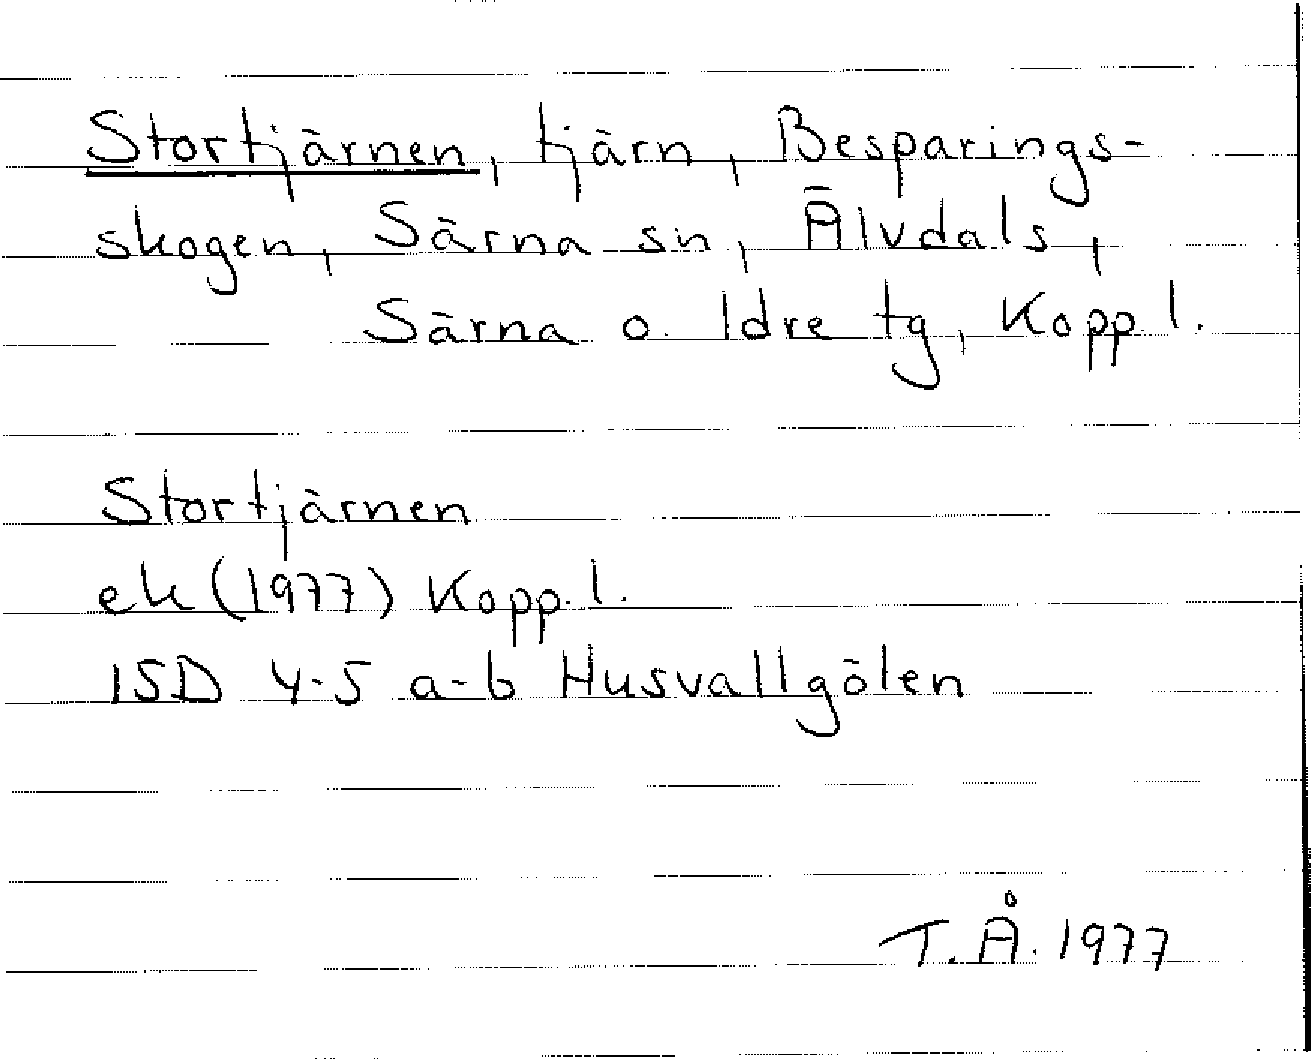 Stortjärnen, tjärn, Besparings-
skogen, Särna sn, Älvdals,
Särna o. Idre tg, Kopp l.
Stortjärnen
ek (1977) Kopp. l.
15D 4-5 a-b Husvallgölen
T.Å. 1977